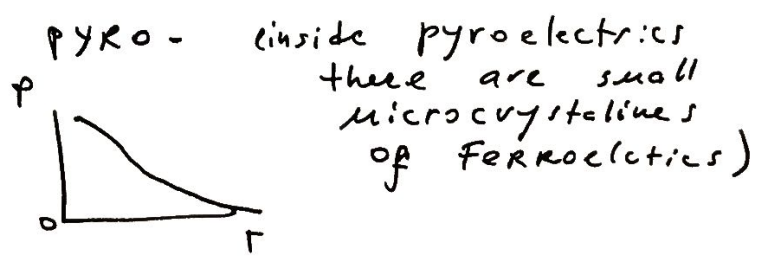 PYRO- (inside pyroelectrics
there are small
microcrystalines
of FERROelctics)
P
O
T